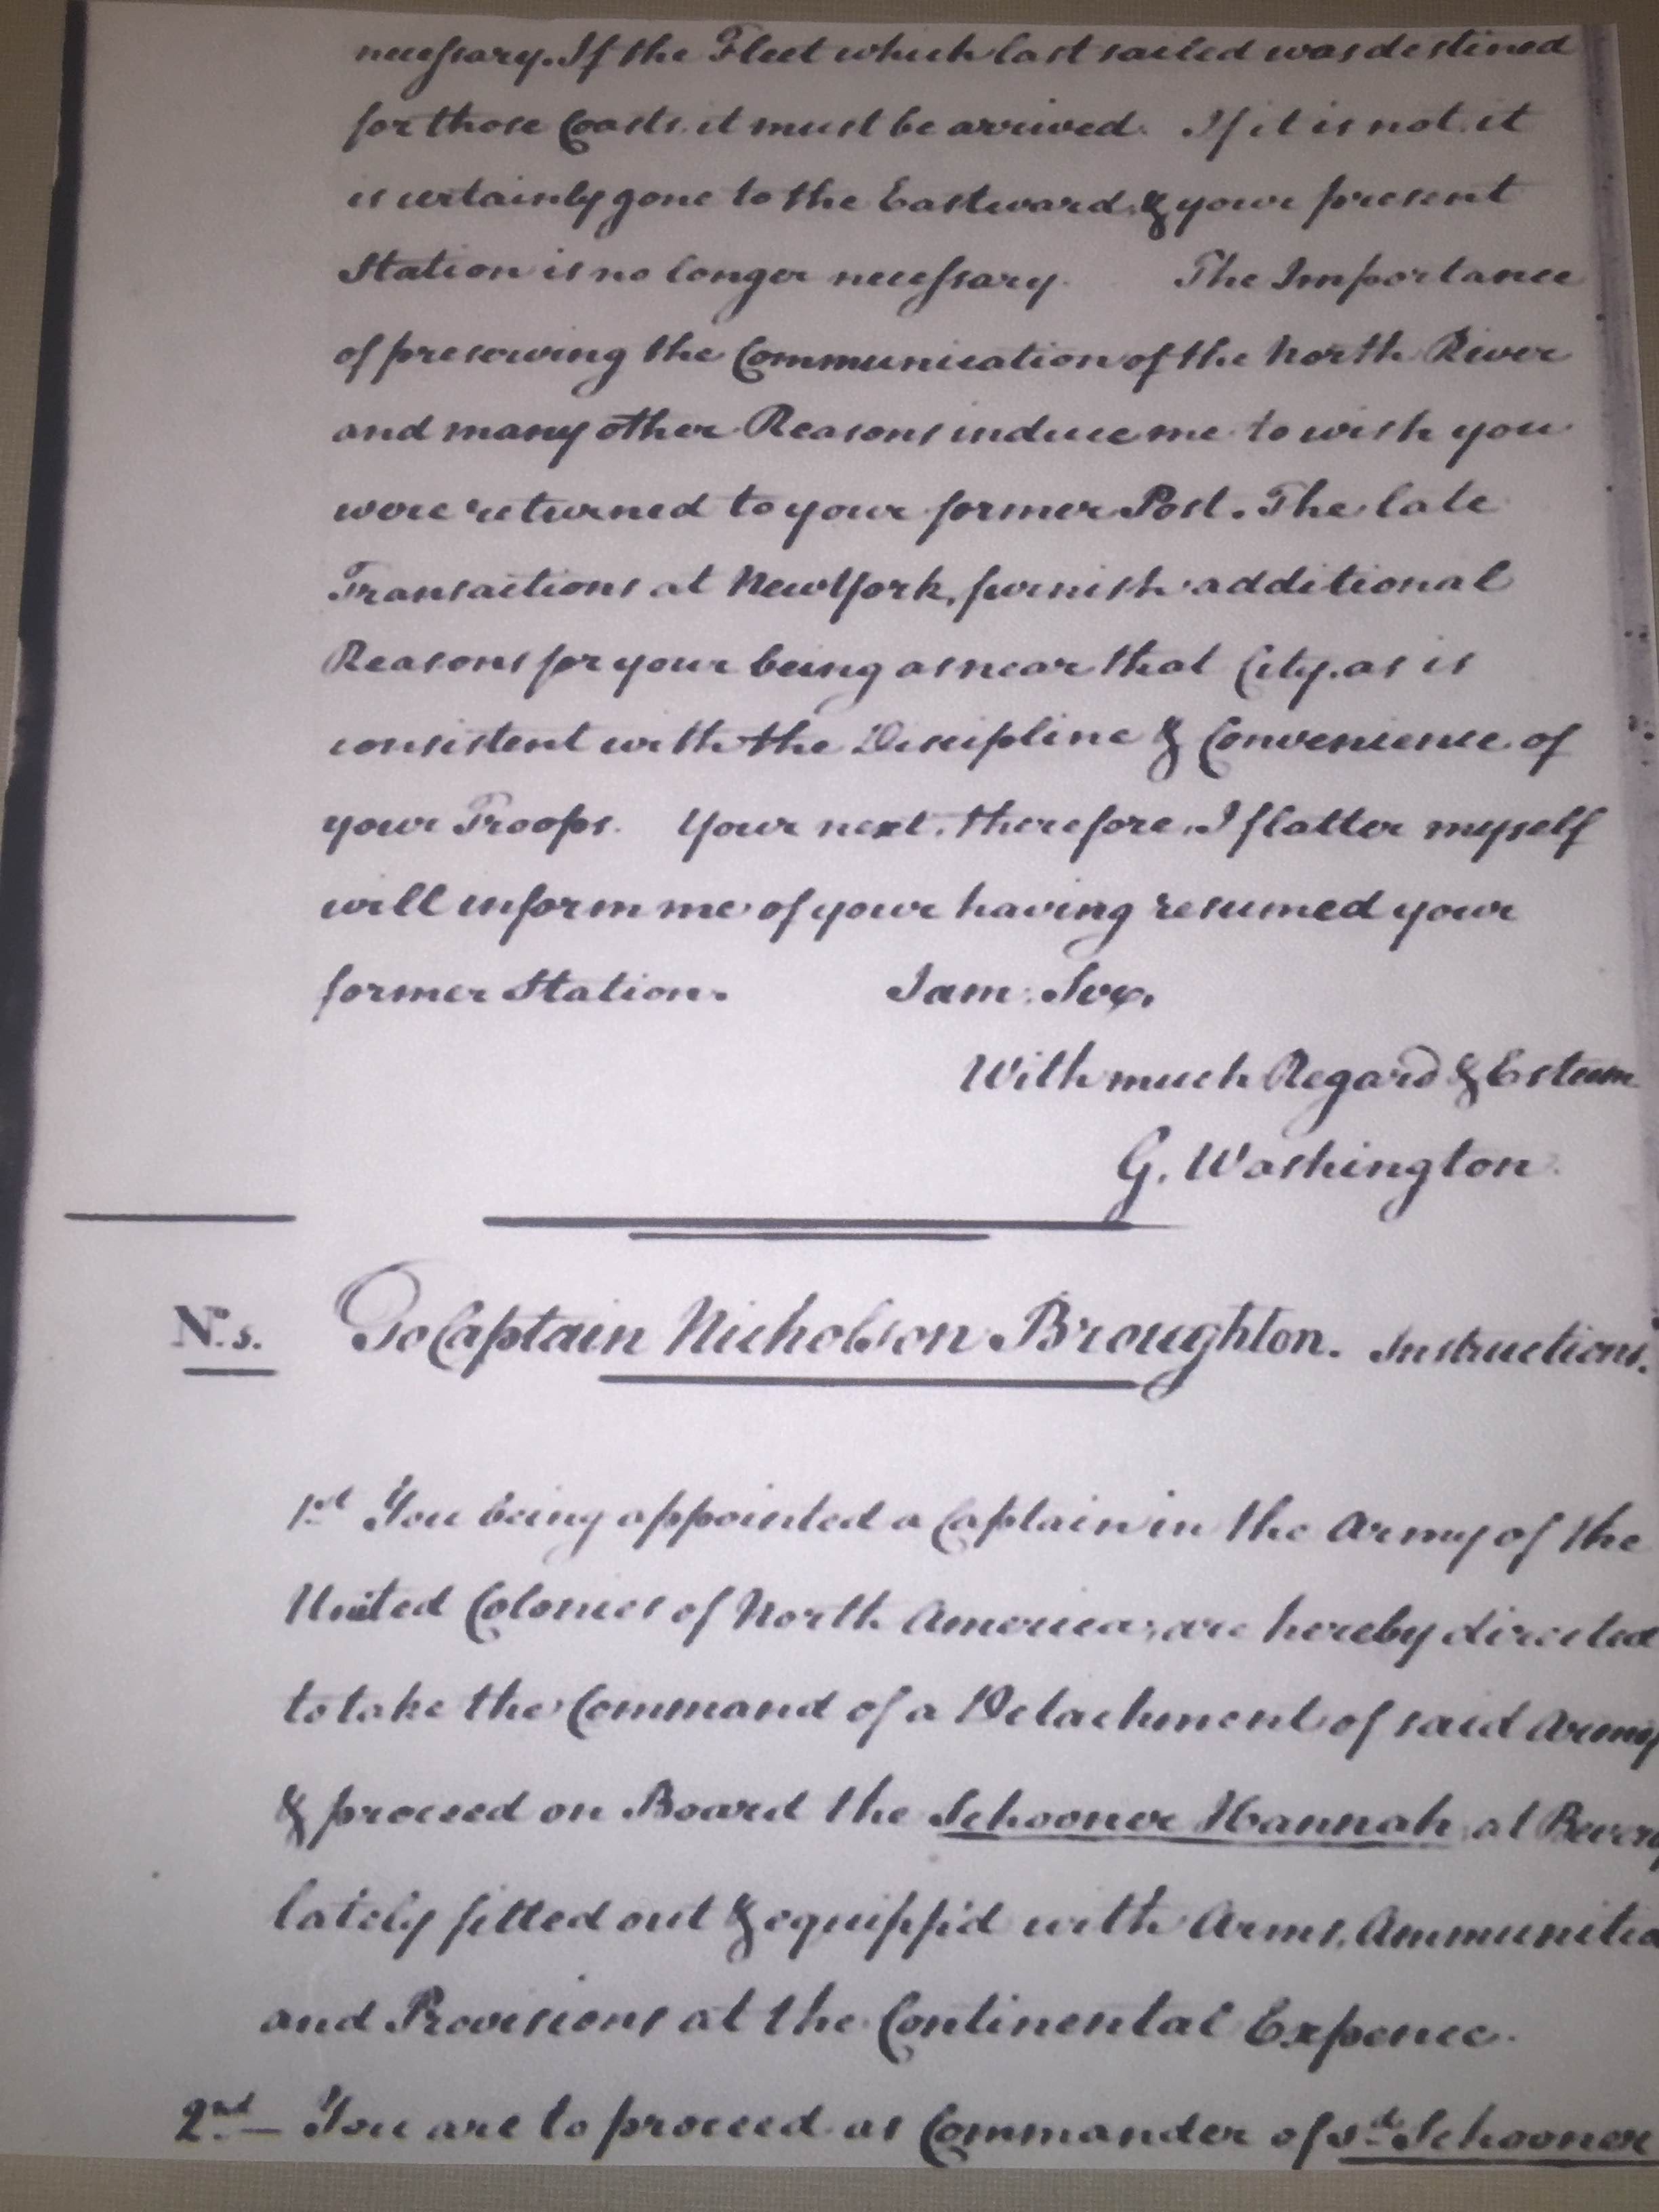 necessary. If the Fleet which last sailed was destined
for those Coasts. it must be arrived. If it is not. it
is certainly gone to the Eastward, & your present
Station is no longer necessary. The Importance
of preserving the Communication of the North River
and many other Reasons induce me to wish you
were returned to your former Post. The late
Transactions at New York, furnish additional
Reasons for your being as near that City. as is
consistent with the Discipline & Convenience of
your Troops. Your next, therefore, I flatter myself
will inform me of your having resumed your
former Station. I am. Sir,
With much Regard & Esteem
G. Washington.
N.o 5. To Captain Nicholson Broughton. Instructions.
1st You being appointed a Captain in the Army of the
United Colonies of North America, are hereby directed
to take the Command of a Detachment of said Army
& proceed on Board the Schooner Hannah, at Bever
lately fitted out & equipp'd with Arms, Ammunitio
and Provisions at the Continental Expence.
2nd— You are to proceed as Commander of sd Schooner